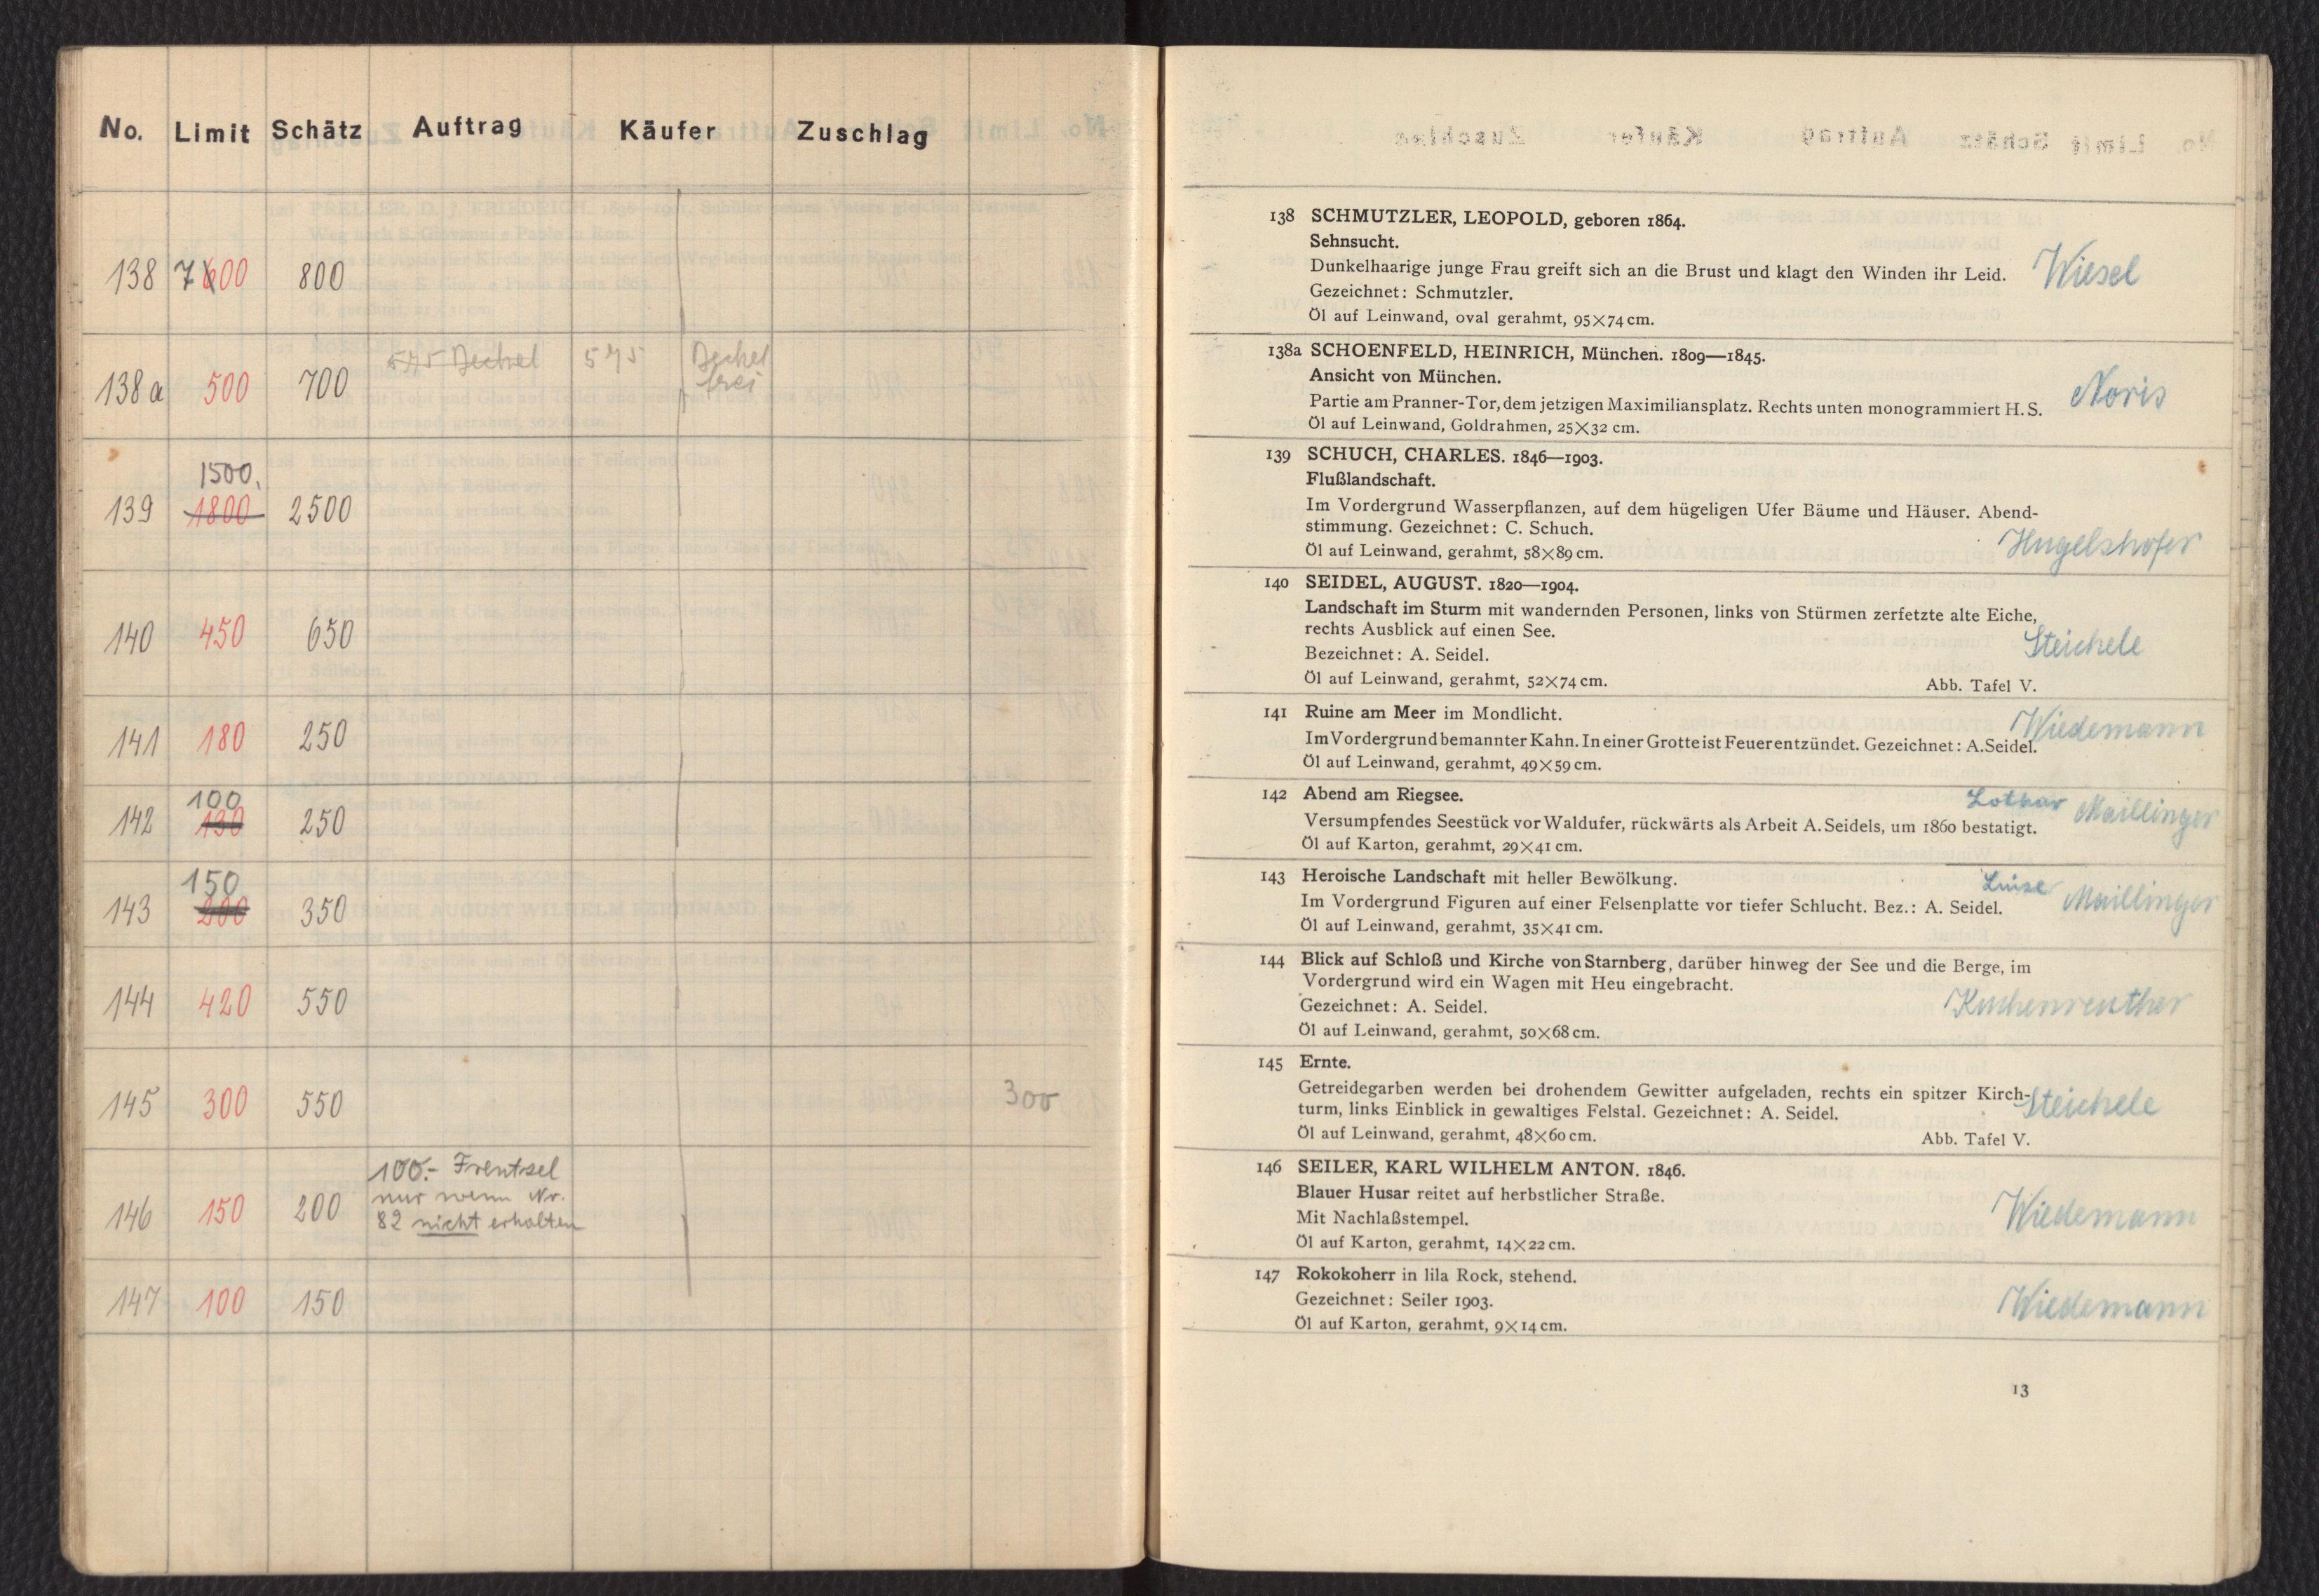 No. Limit Schätz Auftrag Käufer Zuschlag
138 7600 800
138a 500 700 575 Dechel 575 Dechel
frei
1500.
139 1800 2500
140 450 650
141 180 250
100
142 130 250
150
143 200 350
144 420 550
145 300 550 300
146 150 200 100.- Frentzel
nur wenn Nr.
82 nicht erhalten
147 100 150
138 SCHMUTZLER, LEOPOLD, geboren 1864.
Sehnsucht.
Dunkelhaarige junge Frau greift sich an die Brust und klagt den Winden ihr Leid. Wiesel
Gezeichnet: Schmutzler.
Öl auf Leinwand, oval gerahmt, 95×74 cm.
138a SCHOENFELD, HEINRICH, München. 1809—1845.
Ansicht von München. Noris
Partie am Pranner-Tor, dem jetzigen Maximiliansplatz. Rechts unten monogrammiert H. S.
Öl auf Leinwand, Goldrahmen, 25×32 cm.
139 SCHUCH, CHARLES. 1846—1903.
Flußlandschaft.
Im Vordergrund Wasserpflanzen, auf dem hügeligen Ufer Bäume und Häuser. Abend-
stimmung. Gezeichnet: C. Schuch.
Öl auf Leinwand, gerahmt, 58×89 cm. Hugelshofer
140 SEIDEL, AUGUST. 1820—1904.
Landschaft im Sturm mit wandernden Personen, links von Stürmen zerfetzte alte Eiche,
rechts Ausblick auf einen See. Steichele
Bezeichnet: A. Seidel.
Öl auf Leinwand, gerahmt, 52×74 cm. Abb. Tafel V.
141 Ruine am Meer im Mondlicht. Wiedemann
Im Vordergrund bemannter Kahn. In einer Grotte ist Feuer entzündet. Gezeichnet: A. Seidel.
Öl auf Leinwand, gerahmt, 49×59 cm.
142 Abend am Riegsee. Lothar Maillinger
Versumpfendes Seestück vor Waldufer, rückwärts als Arbeit A. Seidels, um 1860 bestatigt.
Öl auf Karton, gerahmt, 29×41 cm.
143 Heroische Landschaft mit heller Bewölkung. Luise Maillinger
Im Vordergrund Figuren auf einer Felsenplatte vor tiefer Schlucht. Bez.: A. Seidel.
Öl auf Leinwand, gerahmt, 35×41 cm.
144 Blick auf Schloß und Kirche von Starnberg, darüber hinweg der See und die Berge, im
Vordergrund wird ein Wagen mit Heu eingebracht.
Gezeichnet: A. Seidel. Kuchenreuther
Öl auf Leinwand, gerahmt, 50×68 cm.
145 Ernte.
Getreidegarben werden bei drohendem Gewitter aufgeladen, rechts ein spitzer Kirch-
turm, links Einblick in gewaltiges Felstal. Gezeichnet: A. Seidel. Steichele
Öl auf Leinwand, gerahmt, 48×60 cm. Abb. Tafel V.
146 SEILER, KARL WILHELM ANTON. 1846.
Blauer Husar reitet auf herbstlicher Straße.
Mit Nachlaßstempel. Wiedemann
Öl auf Karton, gerahmt, 14×22 cm.
147 Rokokoherr in lila Rock, stehend.
Gezeichnet: Seiler 1903. Wiedemann
Öl auf Karton, gerahmt, 9×14 cm.
13